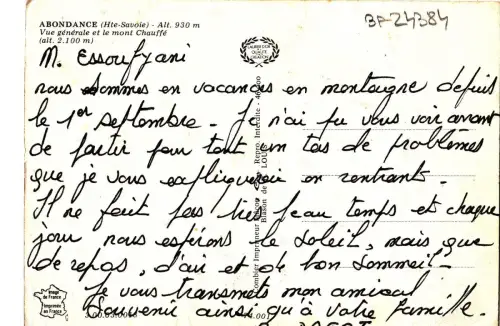 ABONDANCE (Hte-Savoie) - Alt. 930 m
Vue générale et le mont Chauffé
(alt. 2.100 m)
BF24384
M. Essoufyani
nous sommes en vacances en montagne depuis
le 1er septembre - Je n'ai pu vous voir avant
de partir pour tout un tas de problèmes
que je vous expliquerai en rentrant.
Il ne fait pas très beau temps et chaque
jour nous espérons le soleil, mais que
de repos, d'air et de bon sommeil -
Je vous transmets mon amical
souvenir ainsi qu'à votre famille.
Image
de France
Imprimée
en France
Combier Imprimeur
Reprod. Interdite